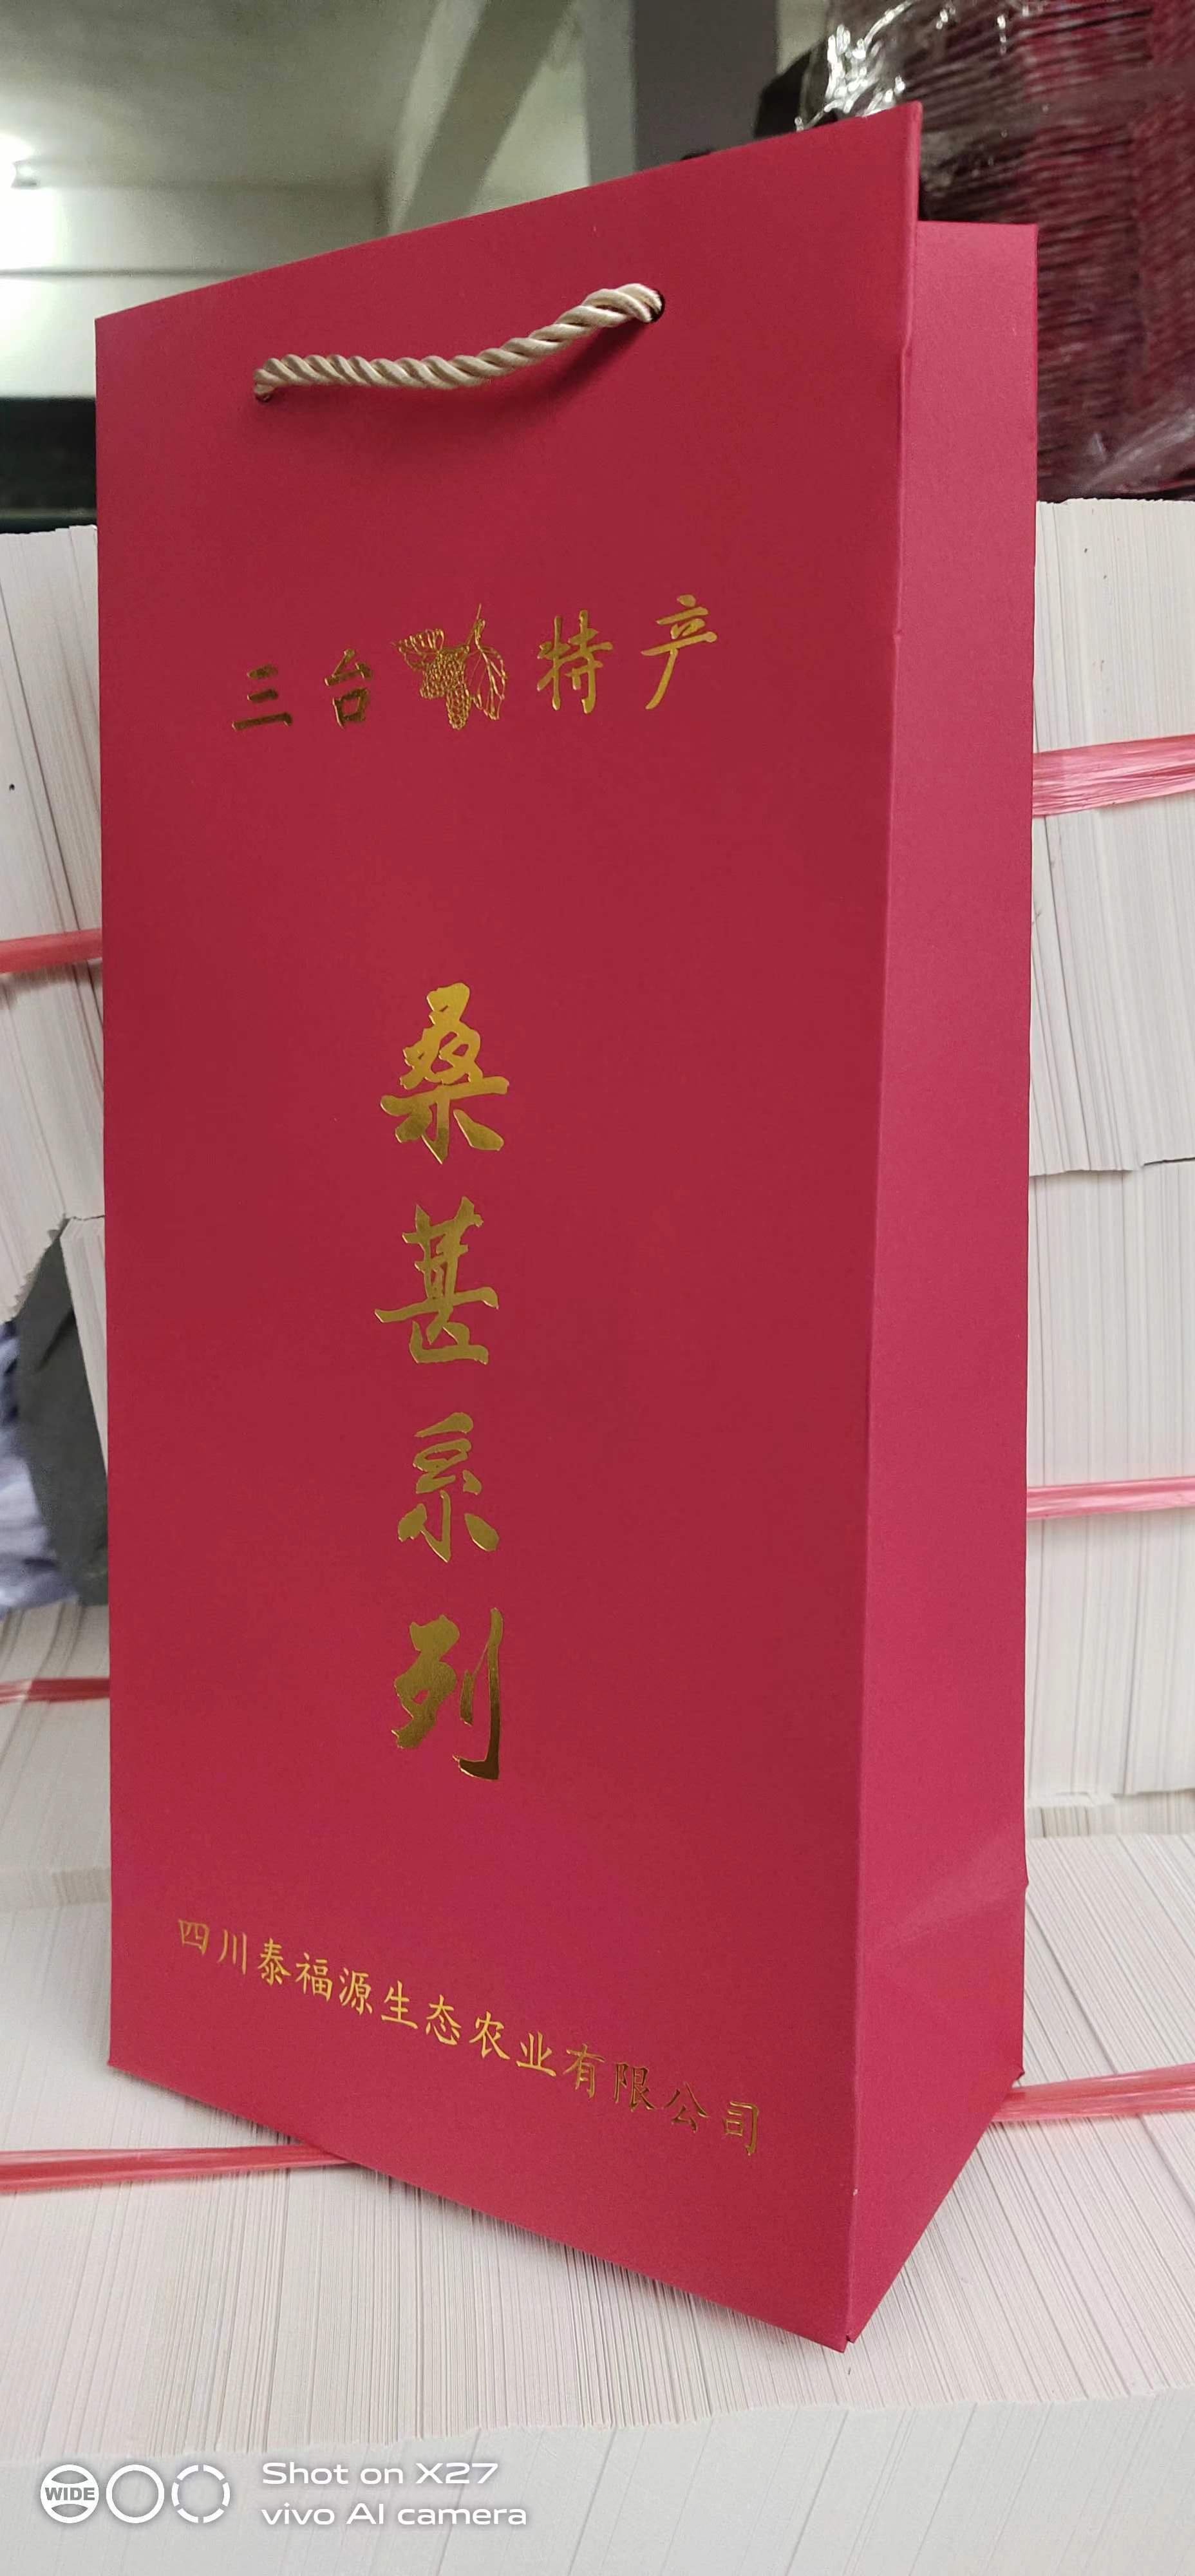 三台特产
桑甚系列
四川泰福源生态农业有限公司
WIDE
Shot on X27
vivo AI camera